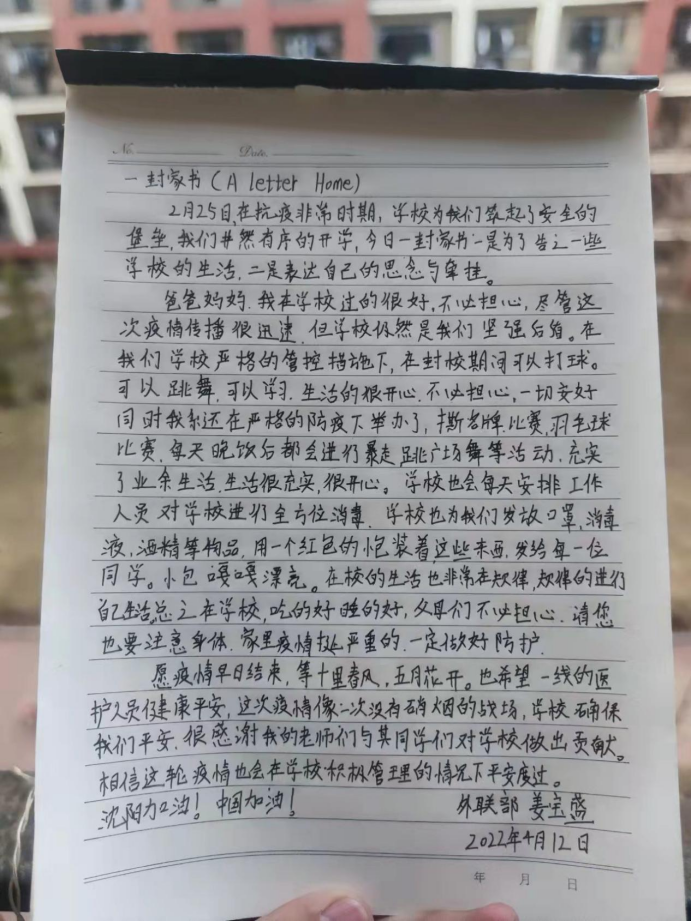 No. Date
一封家书(A letter Home)
2月25日,在抗疫非常时期,学校为我们筑起了安全的
堡垒,我们井然有序的开学,今日一封家书一是为了告之一些
学校的生活,二是表达自己的思念与牵挂。
爸爸妈妈,我在学校过的很好,不必担心,尽管这
次疫情传播很迅速,但学校仍然是我们坚强后盾。在
我们学校严格的管控措施下,在封校期间可以打球。
可以跳舞,可以学习,生活的很开心,不必担心,一切安好
同时我系还在严格的防疫下举办了,撕名牌比赛,羽毛球
比赛,每天晚饭后都会进行暴走,跳广场舞等活动,充实
了业余生活,生活很充实,很开心。学校也会每天安排工作
人员对学校进行全方位消毒,学校也为我们发放口罩,消毒
液,酒精等物品,用一个红包的小包装着这些东西,发给每一位
同学。小包嘎嘎漂亮。在校的生活也非常在规律,规律的进行
自己生活,总之在学校,吃的好睡的好,父母们不必担心,请您
也要注意身体,家里疫情挺严重的,一定做好防护,
愿疫情早日结束,等十里春风,五月花开。也希望一线的医
护人员健康平安,这次疫情像一次没有硝烟的战场,学校确保
我们平安,很感谢我的老师们与其同学们对学校做出贡献。
相信这轮疫情也会在学校积极管理的情况下平安度过。
沈阳加油!中国加油! 外联部 姜宝盛
2022年4月12日
年 月 日